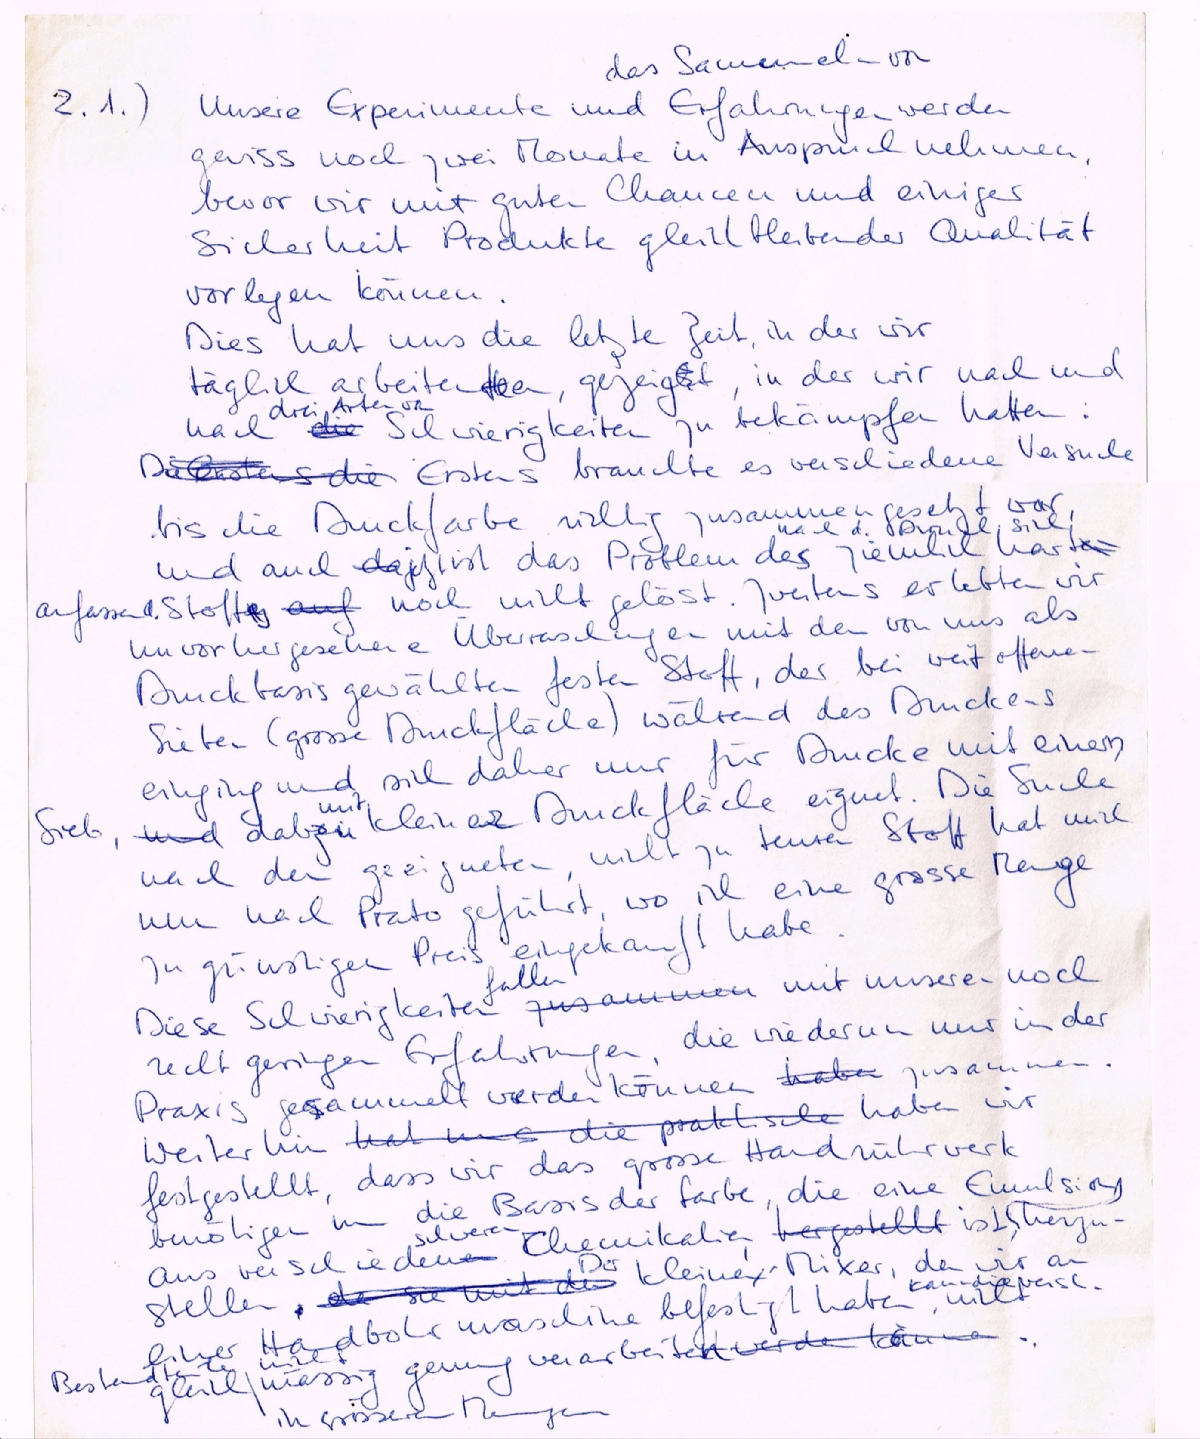 das Sammeln von
2.1.) Unsere Experimente und Erfahrungen werden
gewiss noch zwei Monate in Anspruch nehmen,
bevor wir mit guten Chancen und einiger
Sicherheit Produkte gleichbleibender Qualität
vorlegen können.
Dies hat uns die letzte Zeit, in der wir
täglich arbeiteten, gezeigt, in der wir nach und
drei Arten von
nach die Schwierigkeiten zu bekämpfen hatten:
Erstens brauchte es verschiedene Versuche
bis die Druckfarbe richtig zusammengesetzt war,
nach d. Druck sich
und auch ist das Problem des ziemlich hart
anfassend. Stoffes auf noch nicht gelöst. Zweitens erlebten wir
unvorhergesehene Überraschungen mit den von uns als
Druckbasis gewählten festen Stoff, der bei weit offenen
Sieben (grosse Druckfläche) während des Druckens
einging und sich daher nur für Drucke mit einem
mit
Sieb, und dabzu kleiner Druckfläche eignet. Die Suche
nach den geeigneten, nicht zu teuren Stoff hat mich
nun nach Prato geführt, wo ich eine grosse Menge
zu günstigen Preis eingekauft habe.
fallen
Diese Schwierigkeiten zusammen mit unseren noch
recht geringen Erfahrungen, die wiederum nur in der
Praxis gesammelt werden können haben zusammen.
Weiterhin hat uns die praktische haben wir
festgestellt, dass wir das grosse Handrührwerk
benötigen um die Basis der Farbe, die eine Emulsion
schweren
aus verschiedenen Chemikalien hergestellt ist, herzu-
Der
stellen. da sie mit den kleiner Mixer, den wir an
kann die versch.
einer Handbohrmaschine befestigt haben, nicht
Bestandteile nicht
gleichmässig genug verarbeiten werden könne.
in grösseren Mengen